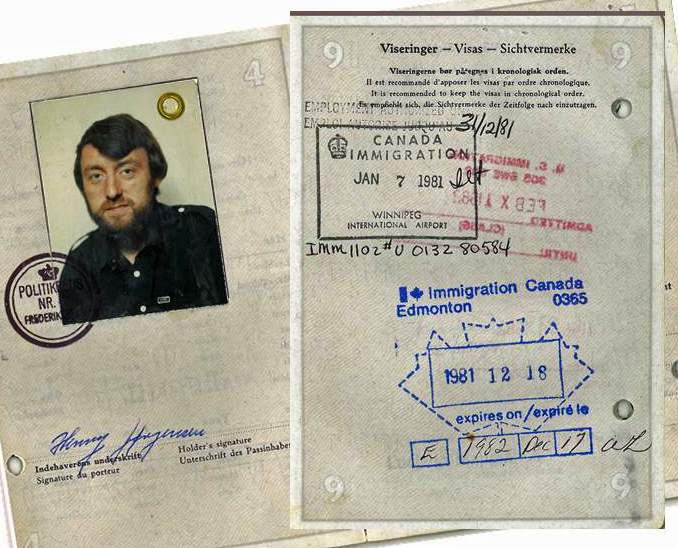 4
POLITIK
NR.
FREDERIK
Henny Jørgensen
Indehaverens underskrift
Signature du porteur
Holder's signature
Unterschrift des Passinhabe
4
9
9
Viseringer – Visas – Sichtvermerke
Viseringerne bør påtegnes i kronologisk orden.
Il est recommandé d'apposer les visas par ordre chronologique.
It is recommended to keep the visas in chronological order.
Es empfiehlt sich, die Sichtvermerke der Zeitfolge nach einzutragen.
EMPLOYMENT AUTHORIZED
EMPLOI AUTORISE JUSQU'AU 31/12/81
CANADA
IMMIGRATION
JAN 7 1981
WINNIPEG
INTERNATIONAL AIRPORT
Imm1102 #U 0132 80584
U. S. IMMIGRATION
FEB
ADMITTED
(CLASS)
UNTIL
Immigration Canada
Edmonton 0365
1981 12 18
expires on / expiré le
E 1982 Dec 17
9
9